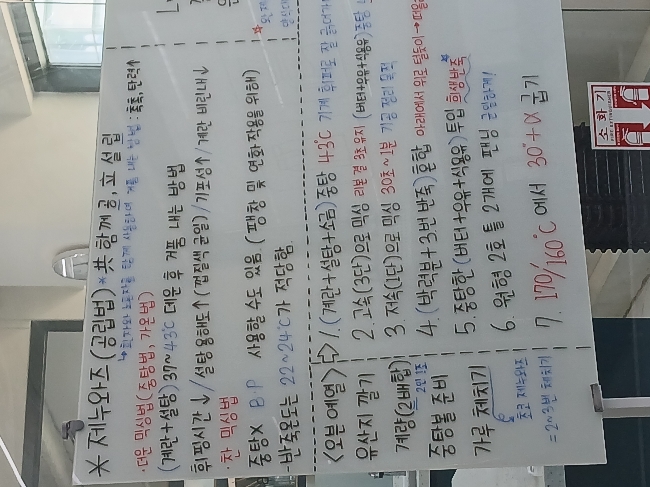 * 제누와즈 (공립법) * 共 함께 공, 立 설 립
↳ 흰자와 노른자를 함께 사용하여 거품 내는 방법 : 촉촉, 탄력↑
· 더운 믹싱법 (중탕법, 가온법)
(계란+설탕) 37~43℃ 데운 후 거품 내는 방법
휘핑시간↓ / 설탕 용해도↑ (껍질색 균일) / 기포성↑ / 계란 비린내↓
· 찬 믹싱법
중탕X B.P 사용할 수도 있음. (팽창 및 연화작용을 위해)
· 반죽온도는 22~24℃가 적당함.
<오븐 예열>
유산지 깔기
계량(2배합)
2인 1조
중탕물 준비
가루 체치기
초코 제누와즈
=2~3번 체치기
⇨ 1. (계란+설탕+소금) 중탕 43℃ 기계 휘퍼로 잘
2. 고속(3단)으로 믹싱 리본결 3초 유지 (버터+우유+식용유) 중탕
3. 저속(1단)으로 믹싱 30초~1분 기공 정리 목적
4. (박력분+3.번 반죽) 혼합 아래에서 위로
5. 중탕한 (버터+우유+식용유) 투입 희생반죽
6. 원형 2호 틀 2개에 팬닝 균일하게!
7. 170/160℃ 에서 30"+α 굽기
소화기